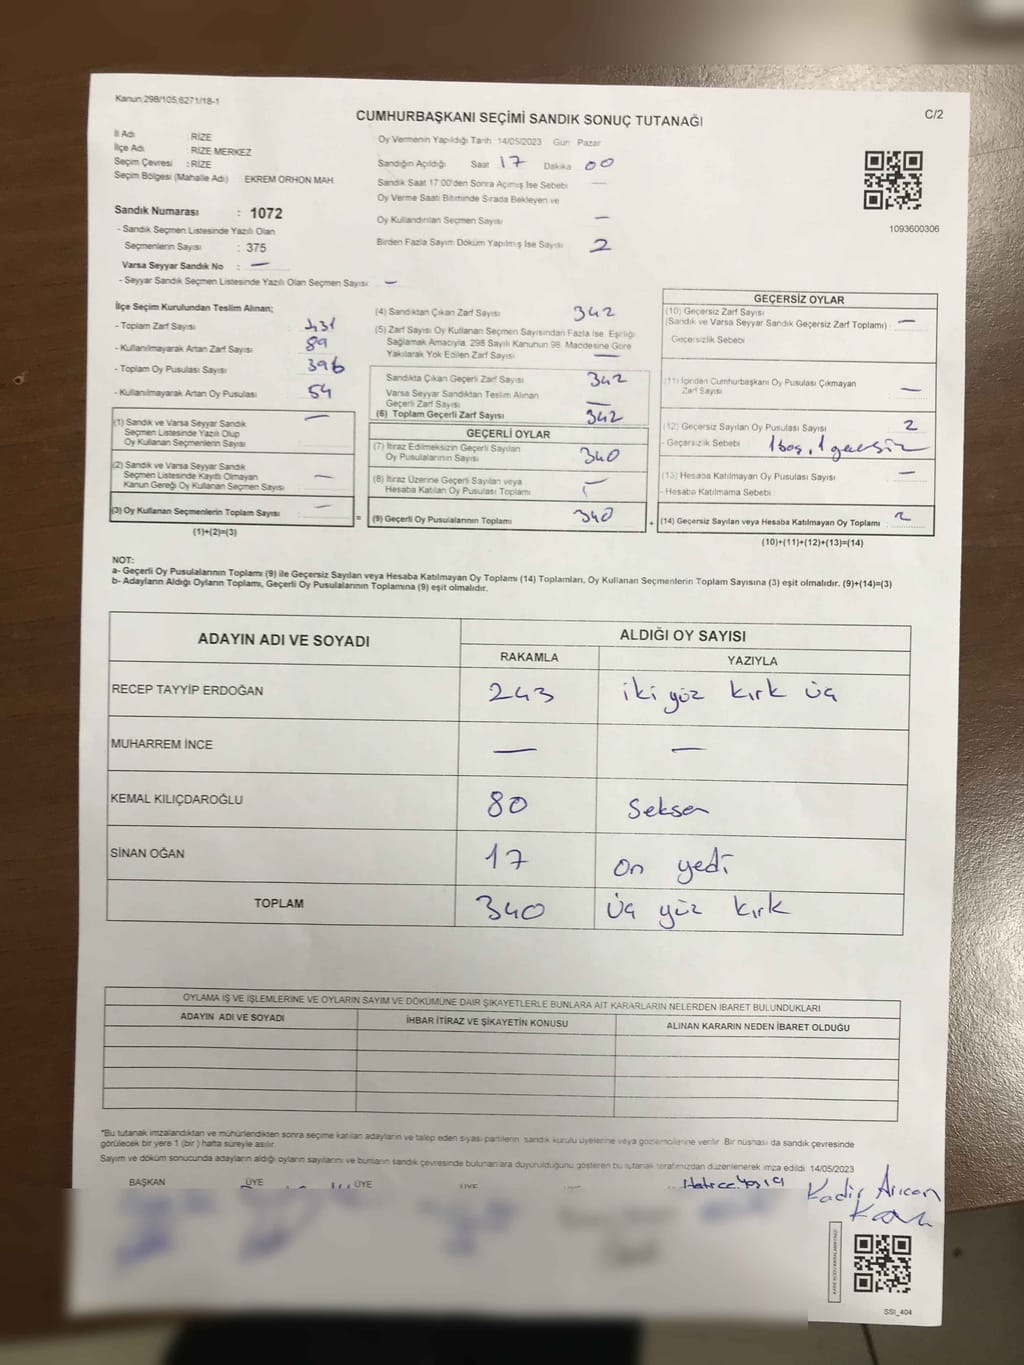 Kanun:298/105,6271/18-1
C/2
CUMHURBAŞKANI SEÇİMİ SANDIK SONUÇ TUTANAĞI
İl Adı : RİZE
İlçe Adı : RİZE MERKEZ
Seçim Çevresi : RİZE
Seçim Bölgesi (Mahalle Adı) EKREM ORHON MAH.
Oy Vermenin Yapıldığı Tarih 14/05/2023 Gün Pazar
Sandığın Açıldığı Saat 17 Dakika 00
Sandık Saat 17:00'den Sonra Açılmış İse Sebebi —
Oy Verme Saati Bitiminde Sırada Bekleyen ve
Oy Kullandırılan Seçmen Sayısı —
Birden Fazla Sayım Döküm Yapılmış İse Sayısı 2
1093600306
Sandık Numarası : 1072
- Sandık Seçmen Listesinde Yazılı Olan
Seçmenlerin Sayısı : 375
Varsa Seyyar Sandık No : —
- Seyyar Sandık Seçmen Listesinde Yazılı Olan Seçmen Sayısı —
İlçe Seçim Kurulundan Teslim Alınan;
- Toplam Zarf Sayısı 431
- Kullanılmayarak Artan Zarf Sayısı 89
- Toplam Oy Pusulası Sayısı 396
- Kullanılmayarak Artan Oy Pusulası 54
(1) Sandık ve Varsa Seyyar Sandık —
Seçmen Listesinde Yazılı Olup
Oy Kullanan Seçmenlerin Sayısı
(2) Sandık ve Varsa Seyyar Sandık
Seçmen Listesinde Kayıtlı Olmayan —
Kanun Gereği Oy Kullanan Seçmen Sayısı
(3) Oy Kullanan Seçmenlerin Toplam Sayısı —
(1)+(2)=(3)
=
(4) Sandıktan Çıkan Zarf Sayısı 342
(5) Zarf Sayısı Oy Kullanan Seçmen Sayısından Fazla İse, Eşitliği
Sağlamak Amacıyla, 298 Sayılı Kanunun 98. Maddesine Göre
Yakılarak Yok Edilen Zarf Sayısı —
Sandıkta Çıkan Geçerli Zarf Sayısı 342
Varsa Seyyar Sandıktan Teslim Alınan
Geçerli Zarf Sayısı —
(6) Toplam Geçerli Zarf Sayısı 342
GEÇERLİ OYLAR
(7) İtiraz Edilmeksizin Geçerli Sayılan
Oy Pusulalarının Sayısı 340
(8) İtiraz Üzerine Geçerli Sayılan veya
Hesaba Katılan Oy Pusulası Toplamı —
(9) Geçerli Oy Pusulalarının Toplamı 340
+
GEÇERSİZ OYLAR
(10) Geçersiz Zarf Sayısı
(Sandık ve Varsa Seyyar Sandık Geçersiz Zarf Toplamı) —
Geçersizlik Sebebi
(11) İçinden Cumhurbaşkanı Oy Pusulası Çıkmayan
Zarf Sayısı —
(12) Geçersiz Sayılan Oy Pusulası Sayısı 2
- Geçersizlik Sebebi 1 boş, 1 geçersiz
(13) Hesaba Katılmayan Oy Pusulası Sayısı —
- Hesaba Katılmama Sebebi
(14) Geçersiz Sayılan veya Hesaba Katılmayan Oy Toplamı 2
(10)+(11)+(12)+(13)=(14)
NOT:
a- Geçerli Oy Pusulalarının Toplamı (9) ile Geçersiz Sayılan veya Hesaba Katılmayan Oy Toplamı (14) Toplamları, Oy Kullanan Seçmenlerin Toplam Sayısına (3) eşit olmalıdır. (9)+(14)=(3)
b- Adayların Aldığı Oyların Toplamı, Geçerli Oy Pusulalarının Toplamına (9) eşit olmalıdır.
ADAYIN ADI VE SOYADI
ALDIĞI OY SAYISI
RAKAMLA YAZIYLA
RECEP TAYYİP ERDOĞAN 243 iki yüz kırk üç
MUHARREM İNCE — —
KEMAL KILIÇDAROĞLU 80 Seksen
SİNAN OĞAN 17 on yedi
TOPLAM 340 üç yüz kırk
OYLAMA İŞ VE İŞLEMLERİNE VE OYLARIN SAYIM VE DÖKÜMÜNE DAİR ŞİKAYETLERLE BUNLARA AİT KARARLARIN NELERDEN İBARET BULUNDUKLARI
ADAYIN ADI VE SOYADI İHBAR İTİRAZ VE ŞİKAYETİN KONUSU ALINAN KARARIN NEDEN İBARET OLDUĞU
"Bu tutanak imzalandıktan ve mühürlendikten sonra seçime katılan adayların ve talep eden siyasi partilerin sandık kurulu üyelerine veya gözlemcilerine verilir. Bir nüshası da sandık çevresinde
görülecek bir yere 1 (bir ) hafta süreyle asılır.
Sayım ve döküm sonucunda adayların aldığı oyların sayılarını ve bunların sandık çevresinde bulunanlara duyurulduğunu gösteren bu tutanak tarafımızdan düzenlenerek imza edildi 14/05/2023
BAŞKAN ÜYE ÜYE ÜYE
Kadir Arıcan
SSI_404